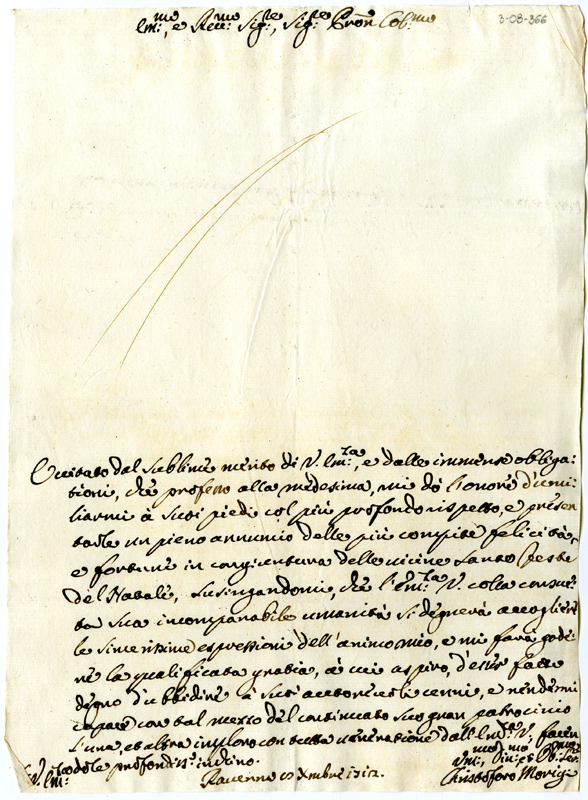 3-08-366
Em:mo, e Rev:mo Sig:re, Sig:re Pron Col:mo
Eccitato dal sublime merito di V. Em:za, e dalle immense obliga-
tioni, che professo alla medesima, mi dò l'onore d'umi-
liarmi à suoi piedi col più profondo rispetto, e presen
tarle un pieno annuncio delle più compite felicità,
e fortune in congiuntura delle vicine Sante Feste
del Natale, lusingandomi, che l'Em:za V. colla consue
ta sua incomparabile umanità si degnerà accogliere
le sincerissime espressioni dell'animo mio, e mi farà gode
re la qualificata gratia, à cui aspiro, d'esser fatto
degno d'ubbidire à suoi autorevoli cenni, e rendermi
capace con tal mezzo del continuato suo gran patrocinio
l'una, et altra imploro con tutta veneratione dall'Em:za V. facen
dole profondis:o inchino.
V. Em:za
Ravenna Xmbre 1712.
Um:mo Div:mo et Ob: Ser:
Christoforo